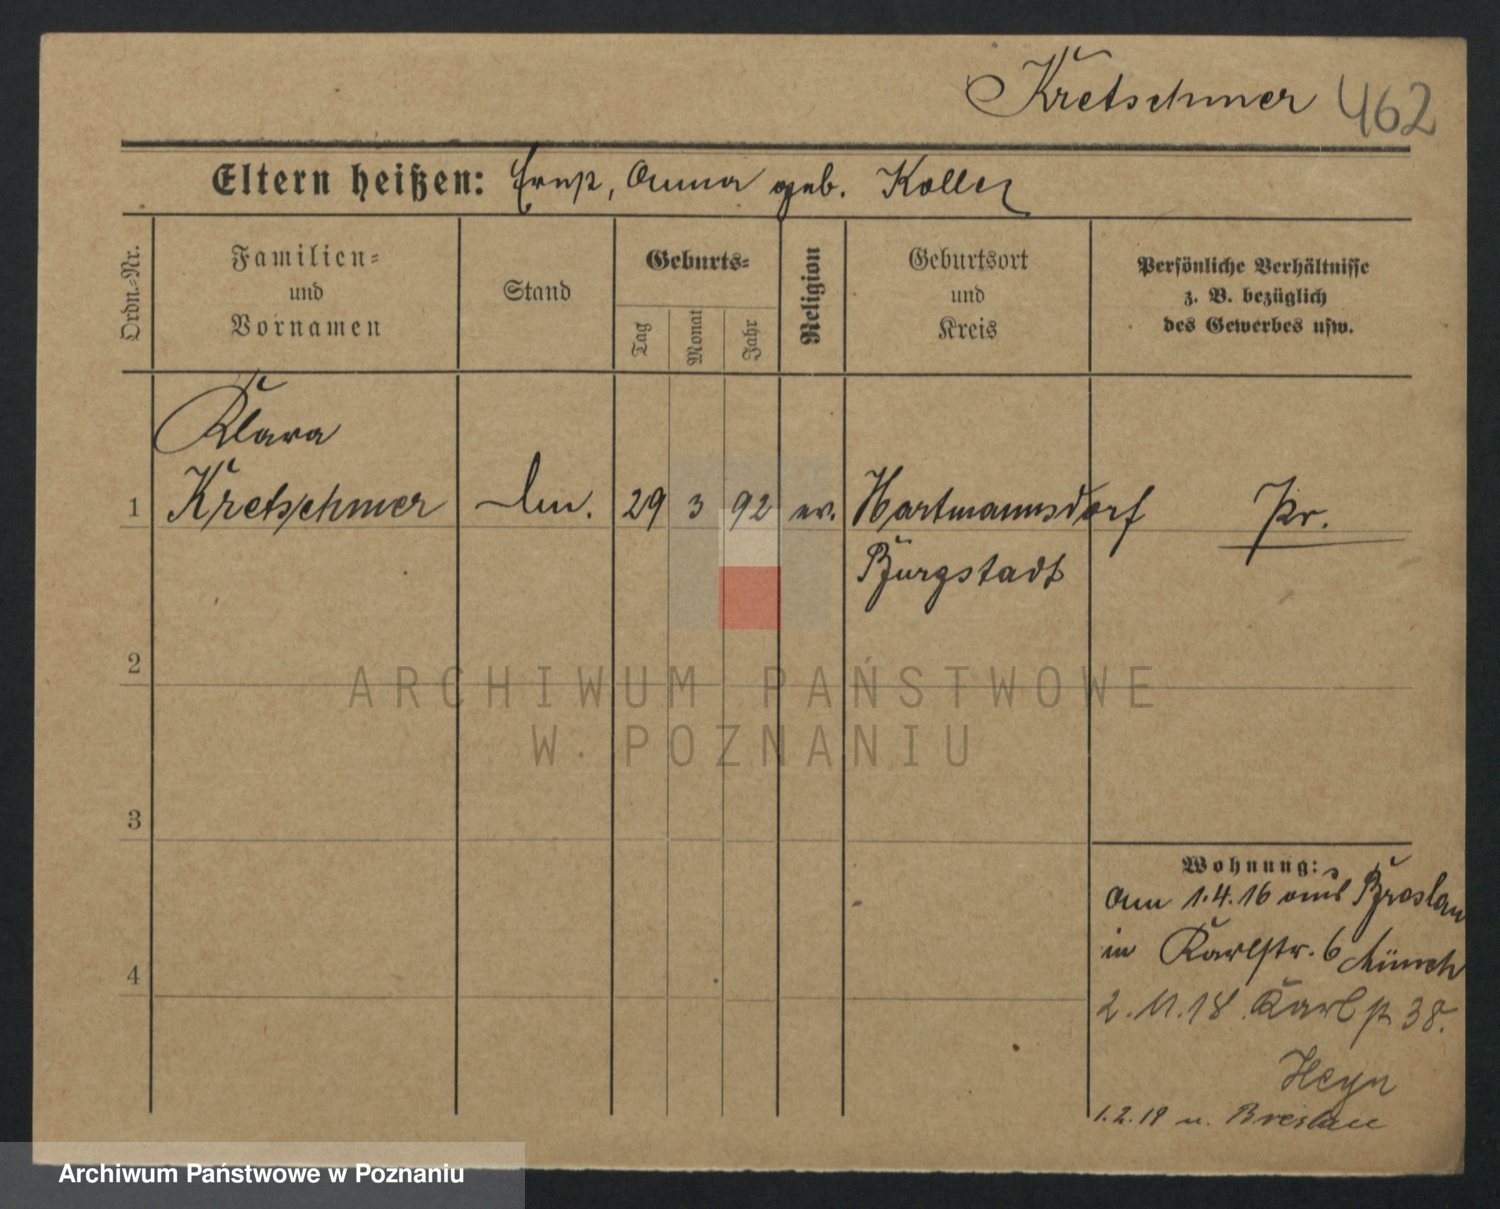 Kretschmer 462
Eltern heißen: Ernst, Anna geb. Koller
Ordn.-Nr.
Familien-
und
Vornamen
Stand
Geburts-
Tag
Monat
Jahr
Religion
Geburtsort
und
Kreis
Persönliche Verhältnisse
z. B. bezüglich
des Gewerbes usw.
Klara
1 Kretschmer 29 3 92 ev. Hartmannsdorf Pr.
Burgstadt
2
3
4
Wohnung:
am 1.4.16 aus Breslau
in Karlstr. 6
2.11.18 Karlst 38.
Heyn
1.2.19 n. Breslau
ARCHIWUM PAŃSTWOWE
W POZNANIU
Archiwum Państwowe w Poznaniu